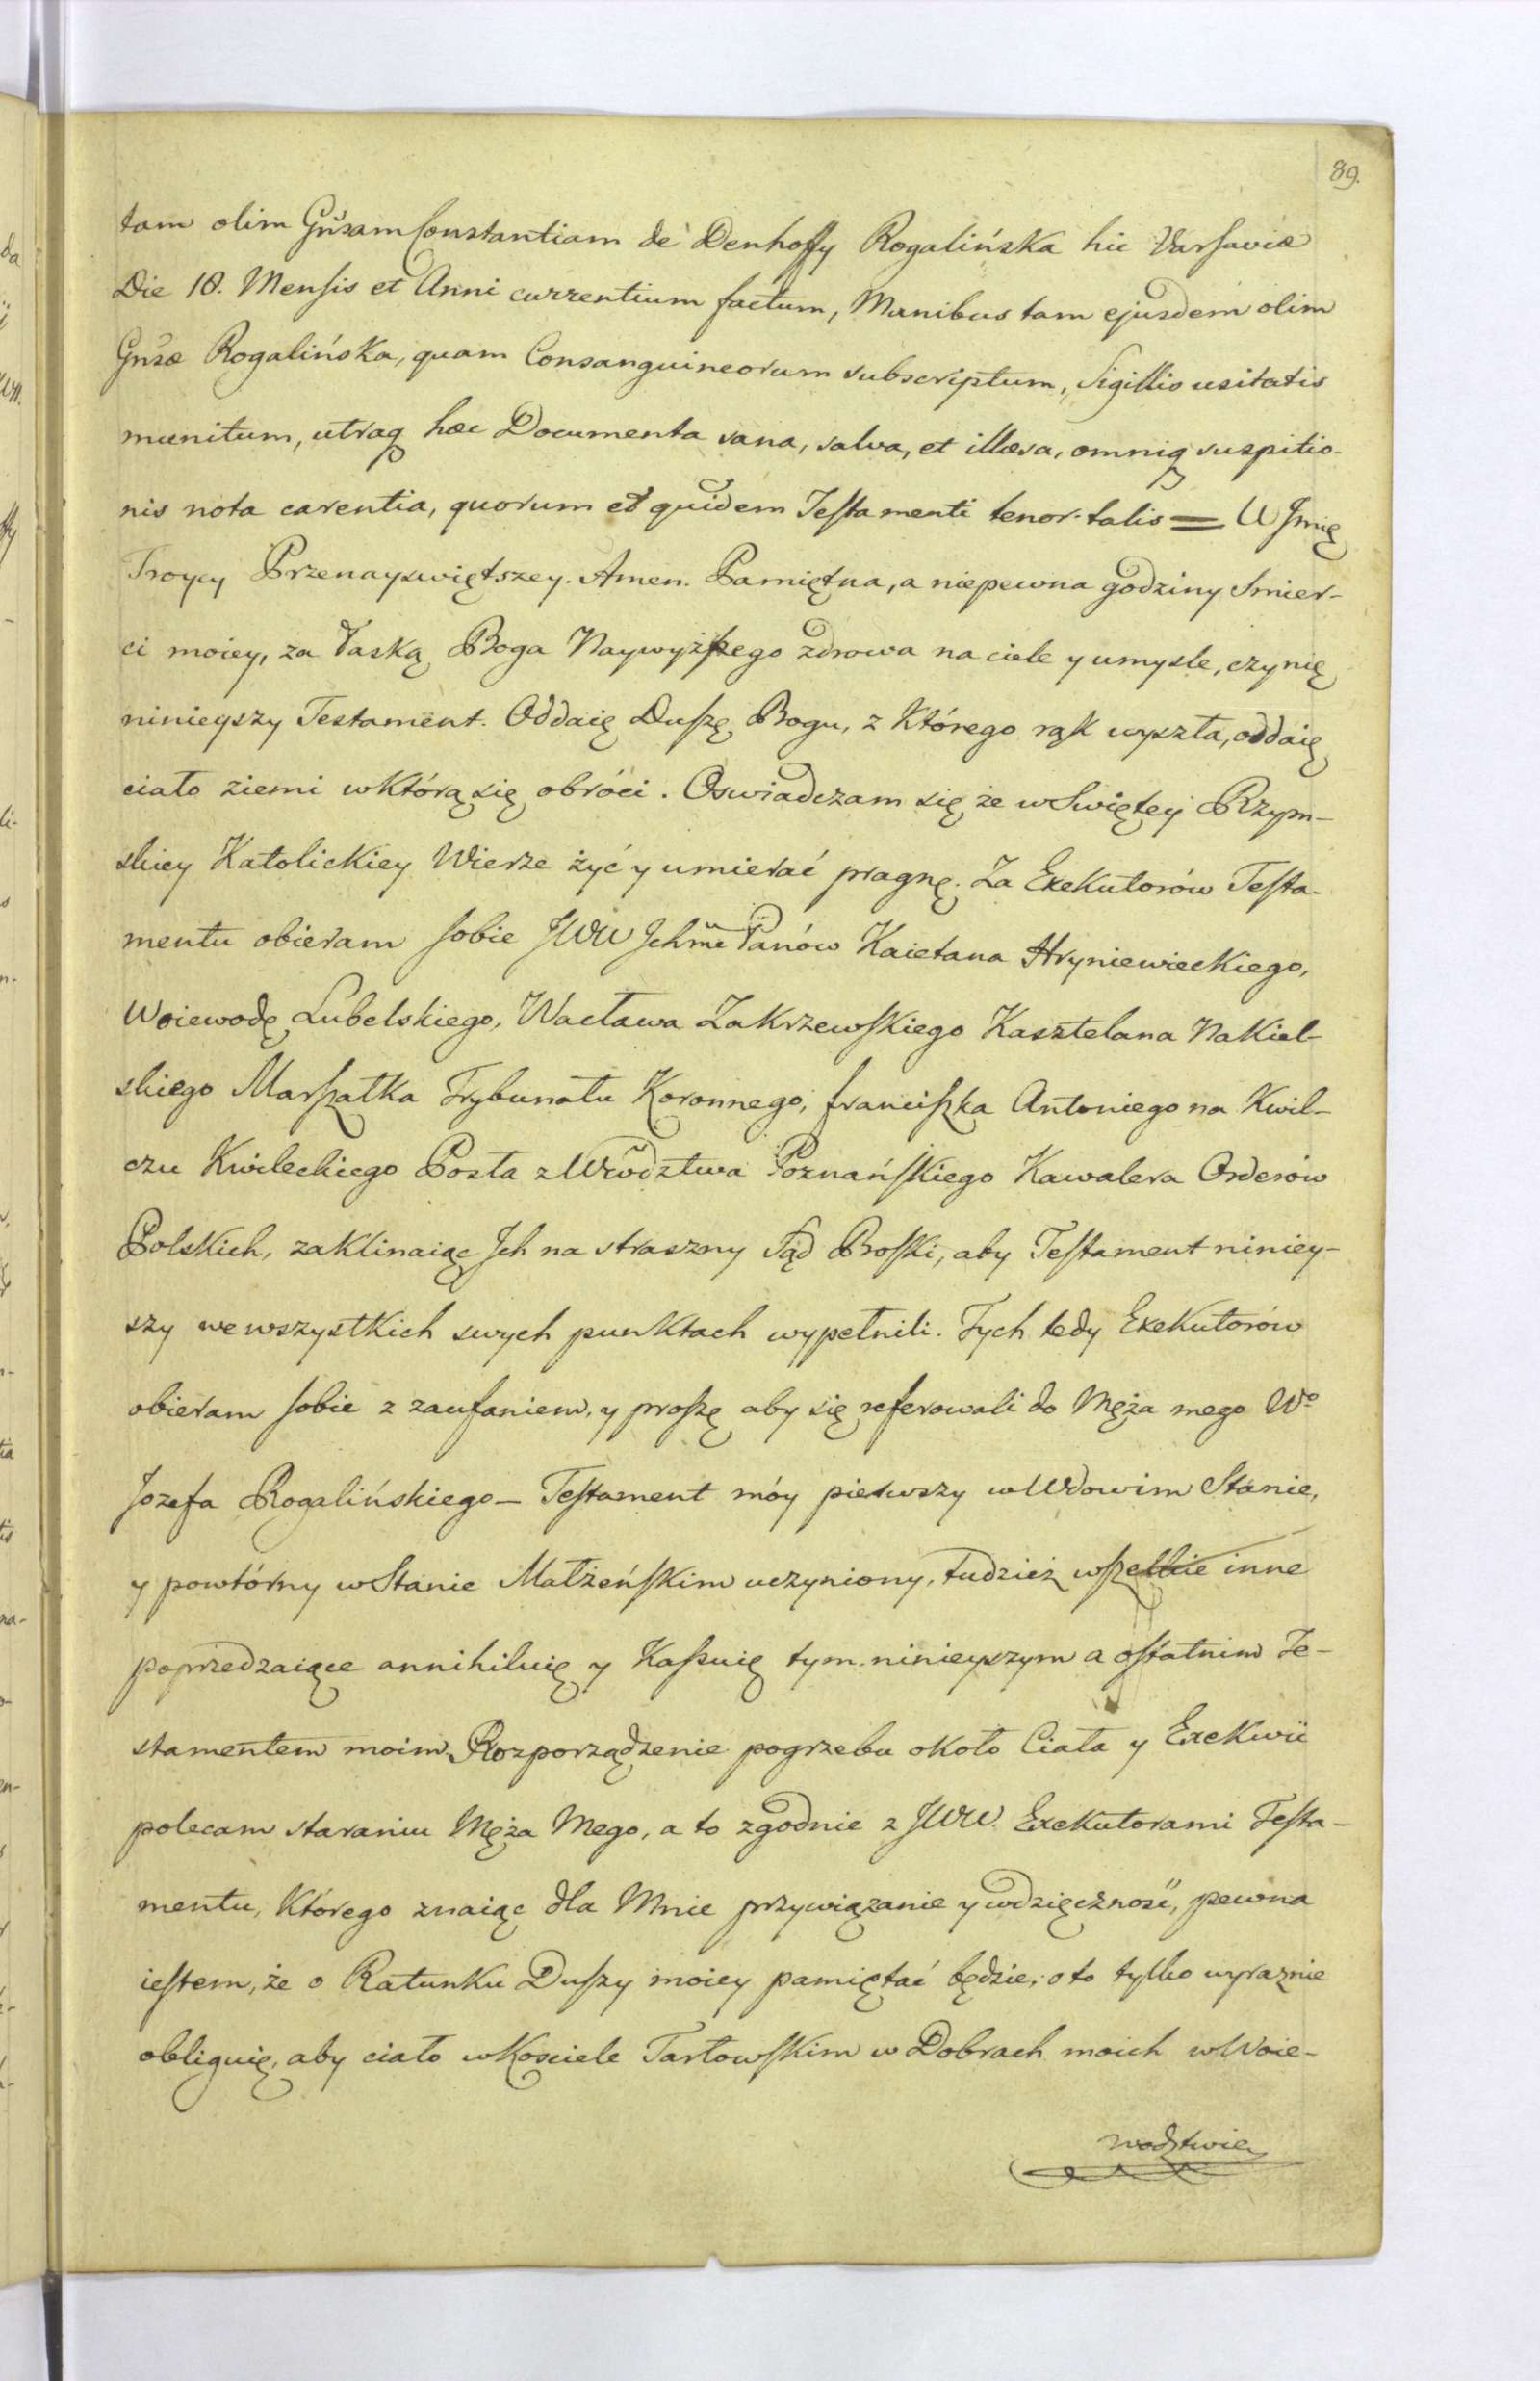 89.
tam olim Gnsam Constantiam de Denhoffy Rogalińska hic Varsaviæ
Die 18. Mensis et Anni currentium factum, Manibus tam ejusdem olim
Gnsæ Rogalińska, quam Consanguineorum subscriptum, Sigillis usitatis
munitum, utraq hæc Documenta sana, salva, et illæsa, omniq suspitio-
nis nota carentia, quorum et quidem Testamenti tenor talis = W Jmię
Troycy Przenayswiętszey. Amen. Pamiętna, a niepewna godziny Smier-
ci moiey, za łaską Boga Naywyższego zdrowa na ciele y umysle, czynię
ninieyszy Testament. Oddaię Duszę Bogu, z Którego rąk wyszła, oddaię
ciało ziemi w którą się obróci. Oswiadczam się że w Swiętey Rzym-
skiey Katolickiey Wierze żyć y umierać pragnę. Za Exekutorów Testa-
mentu obieram sobie JWW Jchmć Panów Kaietana Hryniewieckiego,
Woiewodę Lubelskiego, Wacława Zakrzewskiego Kasztelana Nakiel-
skiego Marszałka Trybunału Koronnego, franciszka Antoniego na Kwil-
czu Kwileckiego Posła z Wwodztwa Poznańskiego Kawalera Orderów
Polskich, zaklinaiąc Jch na straszny Sąd Boski, aby Testament niniey-
szy we wszystkich swych punktach wypełnili. Tych tedy Exekutorów
obieram sobie z zaufaniem, y proszę aby się referowali do Męża mego Wo
Jozefa Rogalińskiego – Testament móy pierwszy w Wdowim Stanie,
y powtórny w Stanie Małżeńskim uczyniony, tudzież wszelkie inne
poprzedzaiące annihiluię y Kassuię tym ninieyszym a ostatnim Te-
stamentem moim. Rozporządzenie pogrzebu około Ciała y Exekwii
polecam staraniu Męża Mego, a to zgodnie z JWW. Exekutorami Testa-
mentu, Którego znaiąc dla Mnie przywiązanie y wdzięczność, pewna
iestem, że o Ratunku Duszy moiey pamiętać będzie; o to tylko wyraznie
obliguię, aby ciało w Kosciele Tarłowskim w Dobrach moich w Woie-
wodztwie